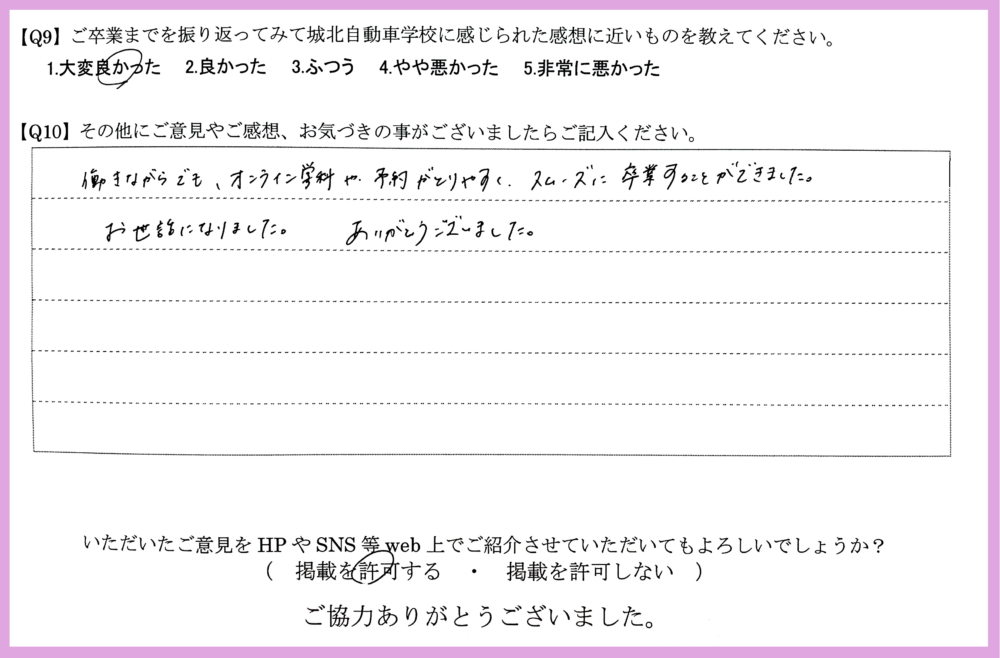 【Q9】ご卒業までを振り返ってみて城北自動車学校に感じられた感想に近いものを教えてください。
1.大変良かった 2.良かった 3.ふつう 4.やや悪かった 5.非常に悪かった
【Q10】その他にご意見やご感想、お気づきの事がございましたらご記入ください。
働きながらでも、オンライン学科や、予約がとりやすく、スムーズに卒業することができました。
お世話になりました。 ありがとうございました。
いただいたご意見をHPやSNS等web上でご紹介させていただいてもよろしいでしょうか？
( 掲載を許可する ・ 掲載を許可しない )
ご協力ありがとうございました。